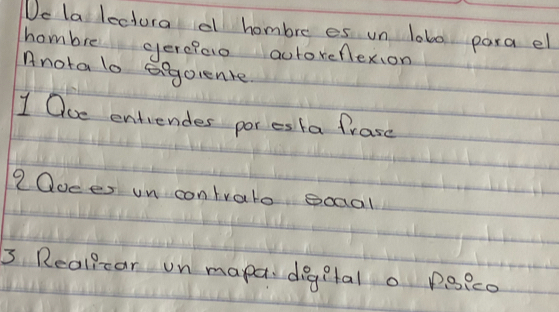 De la lectura el hombre es un lobo para el
hombre ejercicio autoreflexion
Anota lo siguiente.
1 Que entiendes por esta frase
2 Que es un contrato social
3 Realizar un mapa. digital o fisico